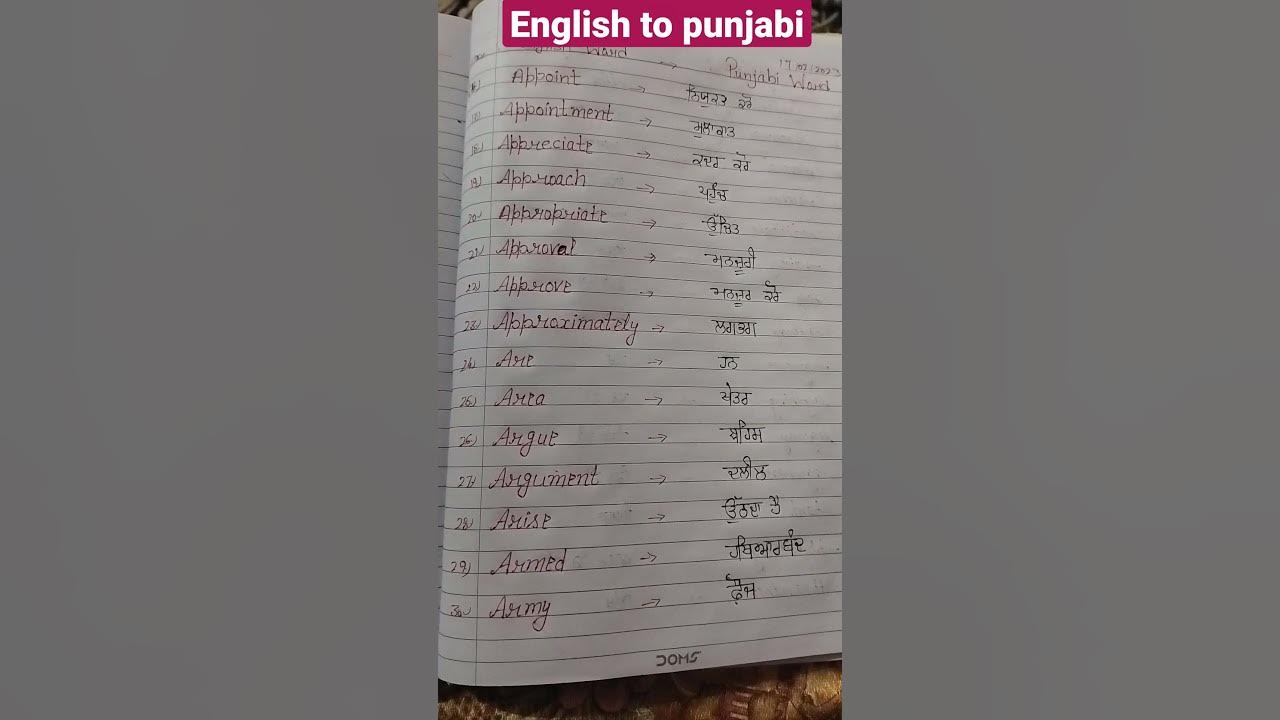 English to punjabi
17/07/2023
Word → Punjabi Word
Appoint → ਨਿਯੁਕਤ ਕਰੋ
Appointment → ਮੁਲਾਕਾਤ
18) Appreciate → ਕਦਰ ਕਰੋ
19) Approach → ਪਹੁੰਚ
20) Appropriate → ਉੱਚਿਤ
21) Approval → ਮਨਜ਼ੂਰੀ
22) Approve → ਮਨਜ਼ੂਰ ਕਰੋ
23) Approximately → ਲਗਭਗ
24) Are → ਹਨ
25) Area → ਖੇਤਰ
26) Argue → ਬਹਿਸ
27) Argument → ਦਲੀਲ
28) Arise → ਉੱਠਦਾ ਹੈ
29) Armed → ਹਥਿਆਰਬੰਦ
30) Army → ਫ਼ੌਜ
DOMS